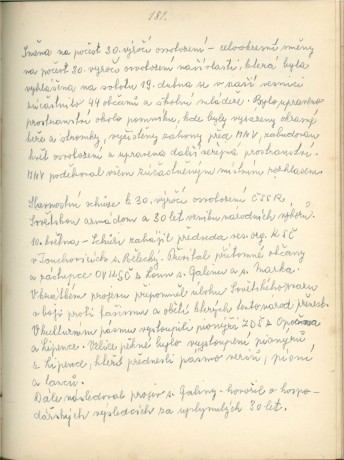 181.
Směna na počest 30. výročí osvobození - celookresní směny
na počest 30. výročí osvobození naší vlasti, která byla
vyhlášena na sobotu 19. dubna se v naší vesnici
zúčastnilo 44 občanů a školní mládeže. Bylo upraveno
prostranství okolo pomníku, kde byly vysazeny okrasné
keře a stromky, vyčištěny záhony před MNV, zabudován
květ osvobození a upravena další veřejná prostranství.
MNV poděkoval všem zúčastněným místním rozhlasem.
Slavnostní schůze k 30. výročí osvobození ČSSR,
Sovětskou armádou a 30 let vzniku národních výborů.
10. května - Schůzi zahájil předseda ves. org. KSČ
v Touchovicích s. Přivítal přítomné občany
a zástupce OV KSČ z Loun s. Galinu a s. Marka.
V krátkém projevu připomněl úlohu Sovětského svazu
v boji proti fašismu a oběti kterých tento národ přinesl.
V kulturním pásmu vystoupili pionýři ZDŠ z Opočna
a Lipence. Velice pěkné bylo vystoupení pionýrů
z Lipence, kteří přednesli pásmo veršů, písní
a tanců.
Dále následoval projev s. Galiny - hovořil o hospo-
dářských výsledcích za uplynulých 30 let.